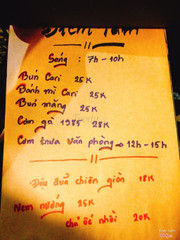 Điểm Tâm
Sáng : 7h - 10h
Bún Cari 25K
Bánh mì Cari 25K
Bún măng 25K
Cơm gà 1985 28K
Cơm trưa văn phòng → 12h - 15h
Đậu Hũ chiên giòn 18K
Nem nướng 25K
chả Dẻ nhồi 20K